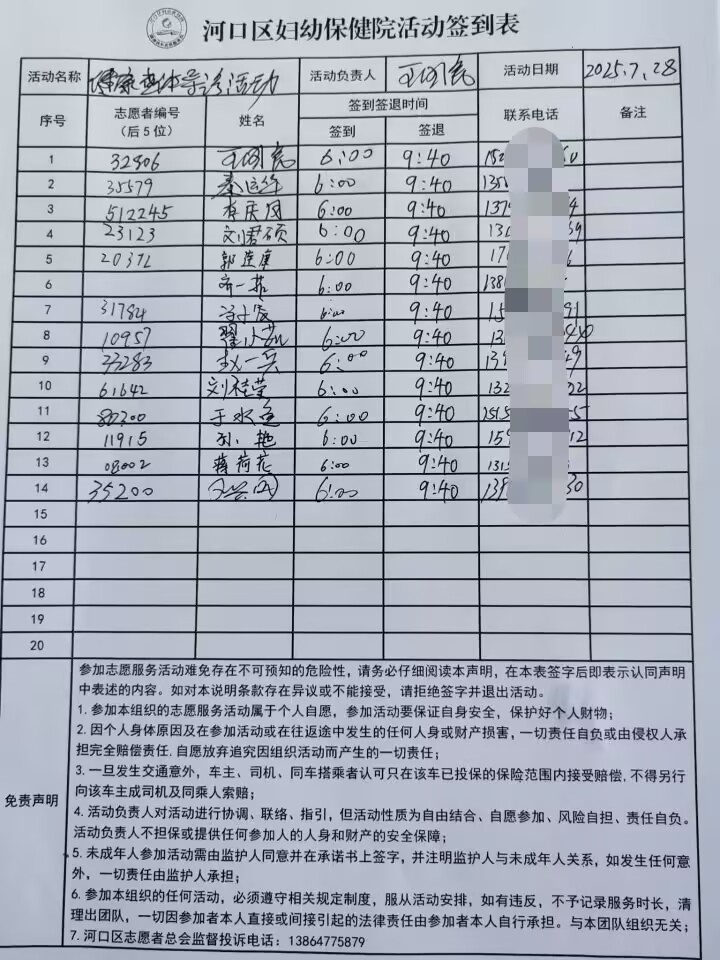 河口区妇幼保健院活动签到表
活动名称 健康查体导诊活动 活动负责人 活动日期 2025.7.28
序号 志愿者编号（后5位） 姓名 签到签退时间 联系电话 备注
签到 签退
1 32806 6:00 9:40
2 35579 6:00 9:40
3 512245 6:00 9:40
4 23123 刘君硕 6:00 9:40
5 20371 郭莲康 6:00 9:40
6 6:00 9:40
7 31784 6:00 9:40
8 10957 6:00 9:40
9 33283 赵一兵 6:00 9:40
10 61642 刘桂莹 6:00 9:40
11 80300 于水莲 6:00 9:40
12 11915 孙艳 6:00 9:40
13 08002 蒋荷花 6:00 9:40
14 35200 6:00 9:40
15
16
17
18
19
20
免责声明
参加志愿服务活动难免存在不可预知的危险性，请务必仔细阅读本声明，在本表签字后即表示认同声明
中表述的内容。如对本说明条款存在异议或不能接受，请拒绝签字并退出活动。
1. 参加本组织的志愿服务活动属于个人自愿，参加活动要保证自身安全，保护好个人财物；
2. 因个人身体原因及在参加活动或在往返途中发生的任何人身或财产损害，一切责任自负或由侵权人承
担完全赔偿责任，自愿放弃追究因组织活动而产生的一切责任；
3. 一旦发生交通意外，车主、司机、同车搭乘者认可只在该车已投保的保险范围内接受赔偿，不得另行
向该车主成司机及同乘人索赔；
4. 活动负责人对活动进行协调、联络、指引，但活动性质为自由结合、自愿参加、风险自担、责任自负。
活动负责人不担保或提供任何参加人的人身和财产的安全保障；
5. 未成年人参加活动需由监护人同意并在承诺书上签字，并注明监护人与未成年人关系，如发生任何意
外，一切责任由监护人承担；
6. 参加本组织的任何活动，必须遵守相关规定制度，服从活动安排，如有违反，不予记录服务时长，清
理出团队，一切因参加者本人直接或间接引起的法律责任由参加者本人自行承担。与本团队组织无关；
7. 河口区志愿者总会监督投诉电话：13864775879